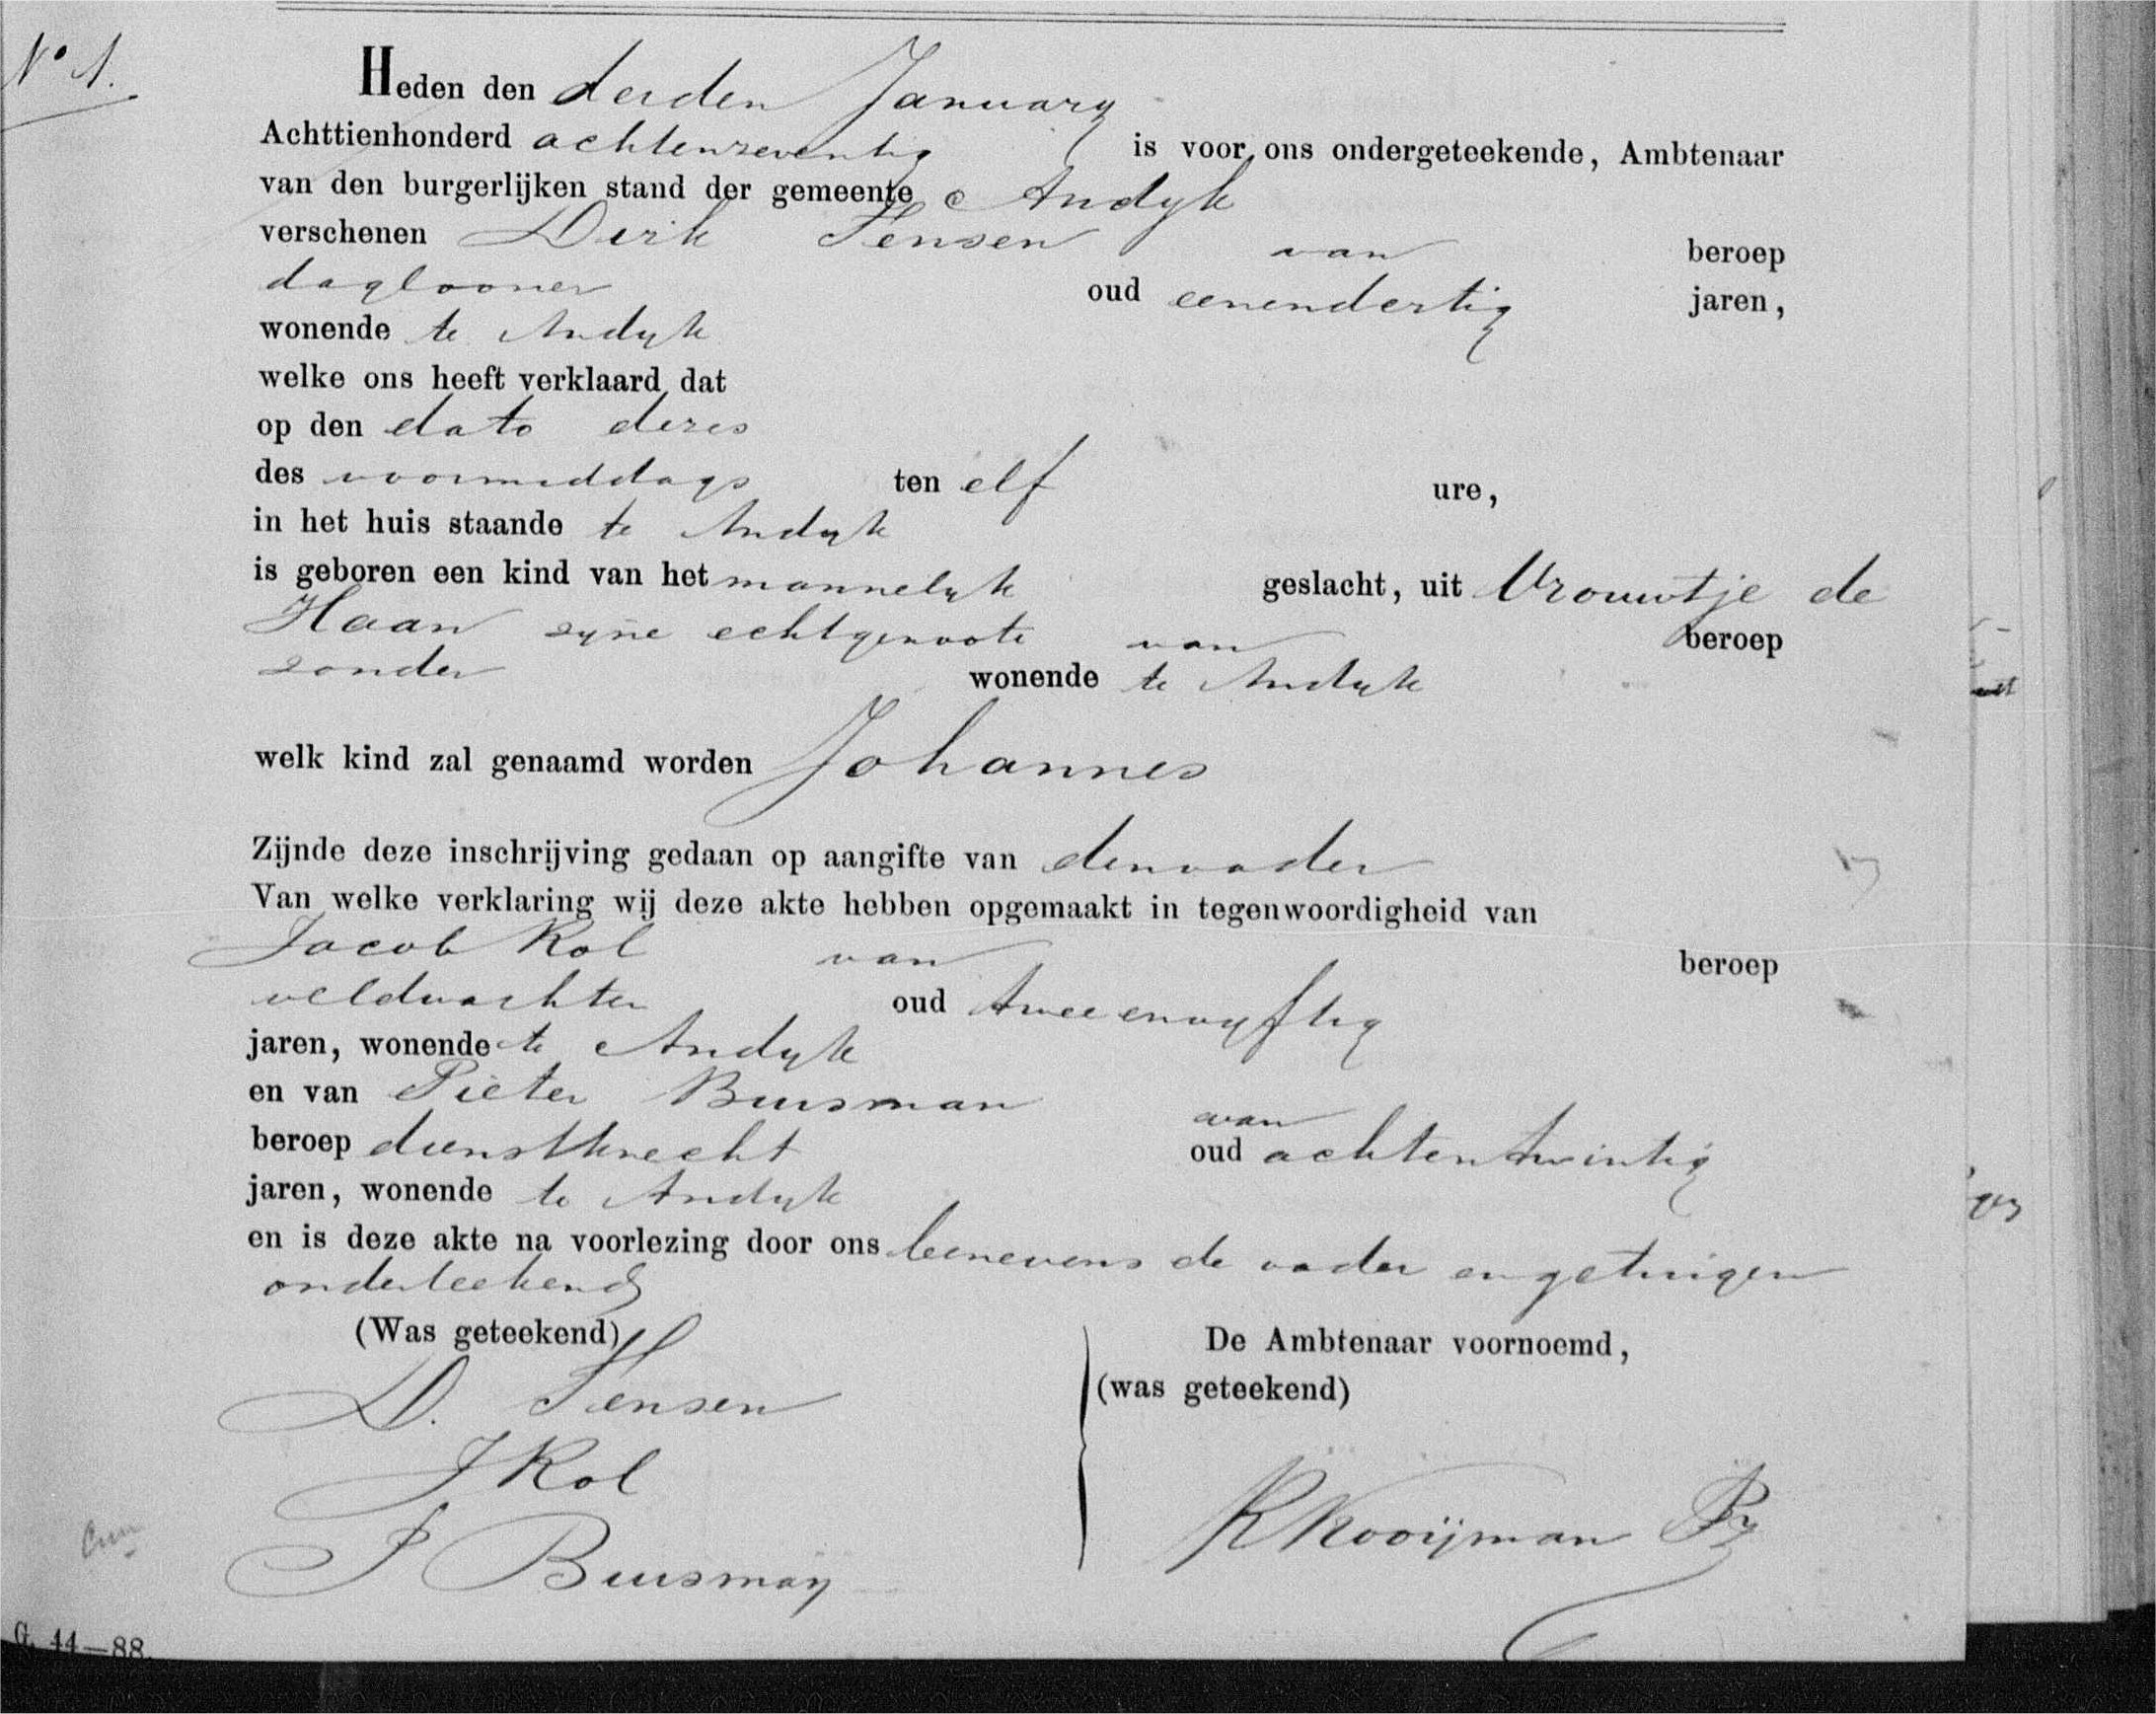 No 1.
Heden den derden January
Achttienhonderd achtenzeventig is voor ons ondergeteekende, Ambtenaar
van den burgerlijken stand der gemeente Andyk
verschenen Dirk Sensen van beroep
daglooner oud eenendertig jaren,
wonende te Andyk
welke ons heeft verklaard dat
op den dato dezes
des voormiddags ten elf ure,
in het huis staande te Andyk
is geboren een kind van het mannelyk geslacht, uit Vrouwtje de
Haan zyne echtgenoote van beroep
zonder wonende te Andyk
welk kind zal genaamd worden Johannes
Zijnde deze inschrijving gedaan op aangifte van den vader
Van welke verklaring wij deze akte hebben opgemaakt in tegenwoordigheid van
Jacob Kol van beroep
veldwachter oud tweeenvyftig
jaren, wonende te Andyk
en van Pieter Buisman van
beroep dienstknecht oud achtentwintig
jaren, wonende te Andyk
en is deze akte na voorlezing door ons benevens de vader en getuigen
onderteekend
(Was geteekend) De Ambtenaar voornoemd,
D. Sensen (was geteekend)
J Kol
P Buisman K Kooijman Pz
G. 44—88.